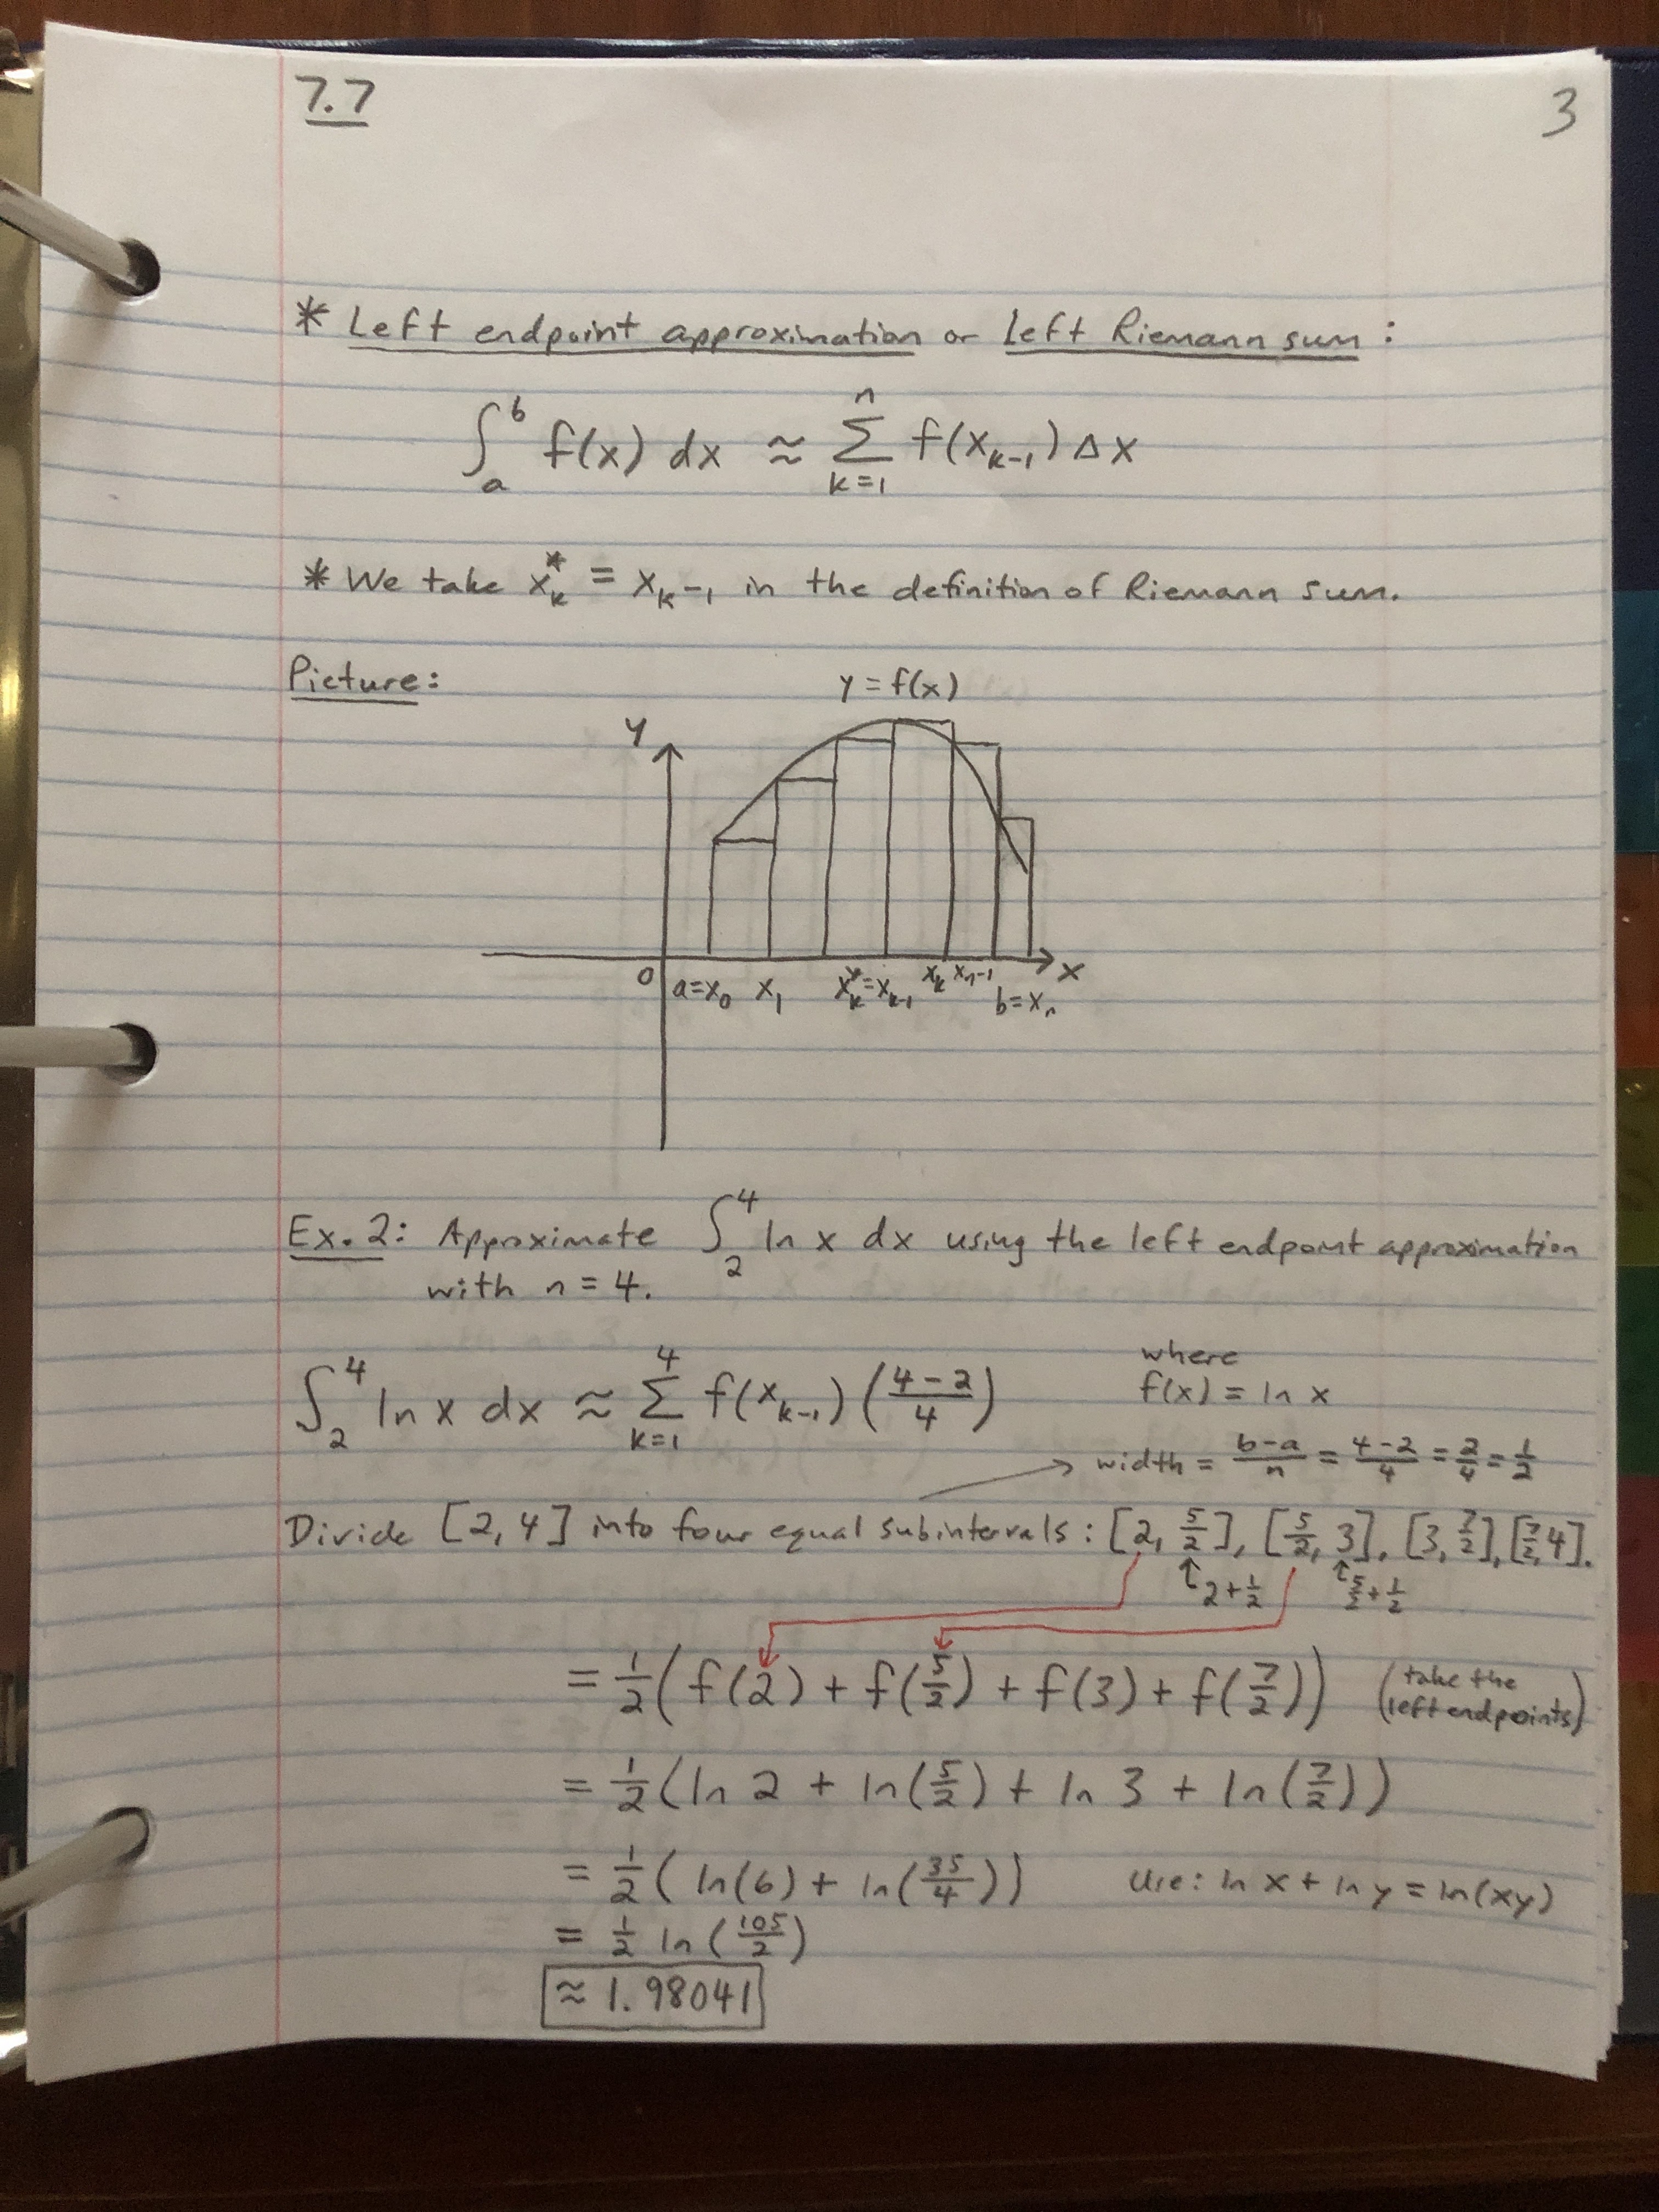 7.7
3
* Left endpoint approximation or left Riemann sum:
∫_a^b f(x) dx ≈ Σ_{k=1}^n f(x_{k-1}) Δx
* We take x_k^* = x_{k-1} in the definition of Riemann sum.
Picture:
y = f(x)
y
0 a=x_0 x_1 x_k^*=x_{k-1} x_k x_{n-1} x
b=x_n
Ex. 2: Approximate ∫_2^4 ln x dx using the left endpoint approximation
with n = 4.
where
∫_2^4 ln x dx ≈ Σ_{k=1}^4 f(x_{k-1}) ((4-2)/4) f(x) = ln x
→ width = (b-a)/n = (4-2)/4 = 2/4 = 1/2
Divide [2, 4] into four equal subintervals: [2, 5/2], [5/2, 3], [3, 7/2], [7/2, 4].
↑ 2 + 1/2 ↑ 5/2 + 1/2
= 1/2 (f(2) + f(5/2) + f(3) + f(7/2)) (take the
left endpoints)
= 1/2 (ln 2 + ln(5/2) + ln 3 + ln(7/2))
= 1/2 (ln(6) + ln(35/4)) Use: ln x + ln y = ln(xy)
= 1/2 ln(105/2)
≈ 1.98041